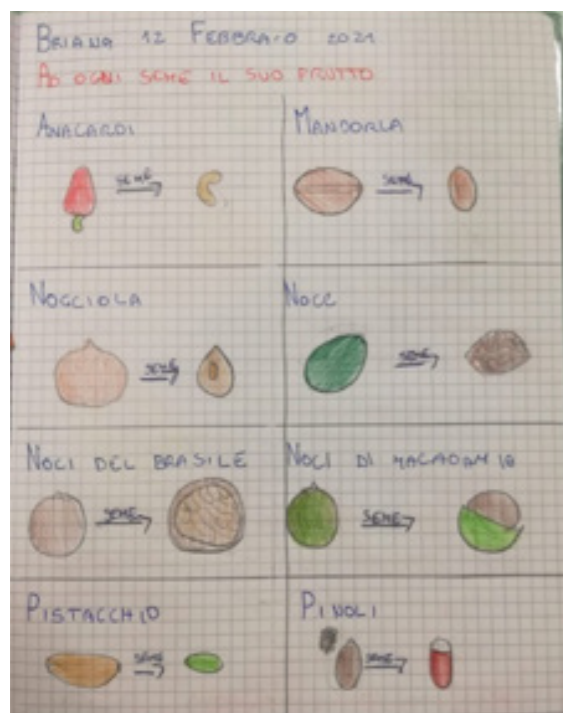 BRIANA 12 FEBBRAIO 2021
AD OGNI SEME IL SUO FRUTTO
ANACARDI
SEME
MANDORLA
SEME
NOCCIOLA
SEME
NOCE
SEME
NOCI DEL BRASILE
SEME
NOCI DI MACADAMIA
SEME
PISTACCHIO
SEME
PINOLI
SEME